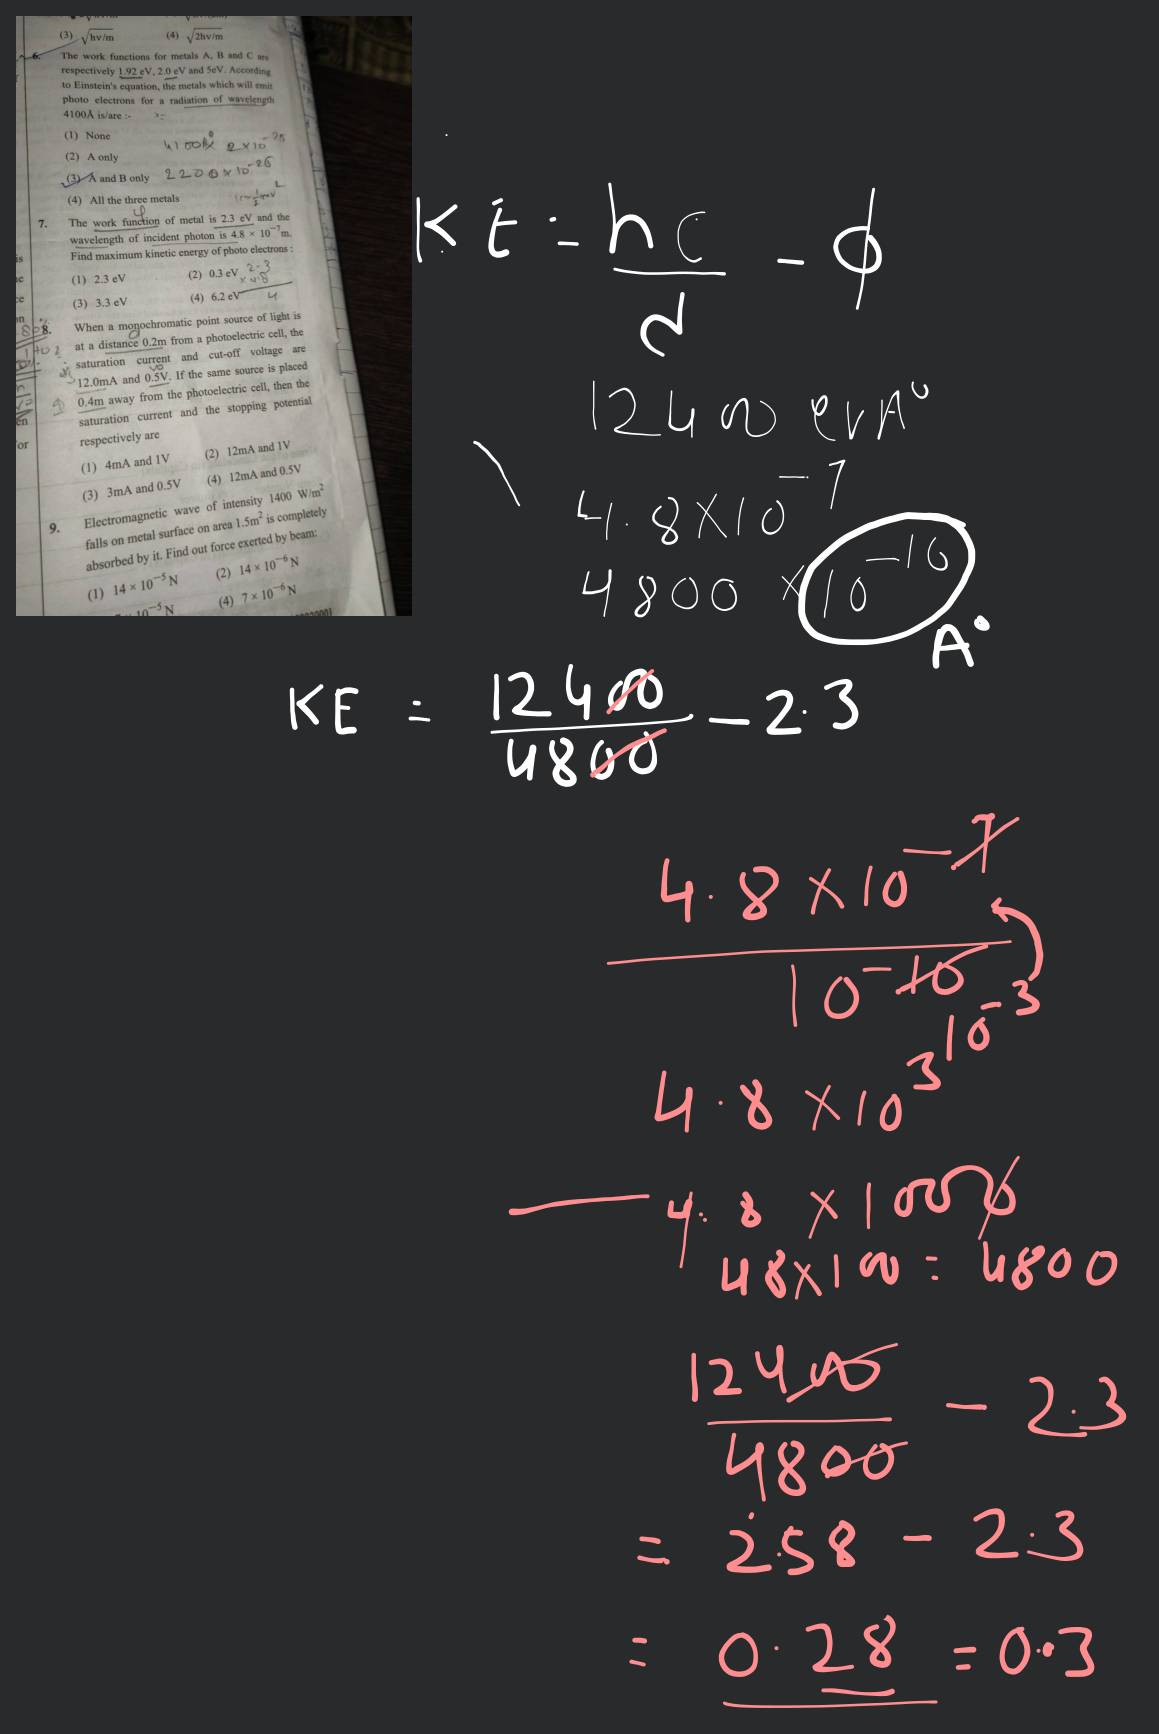 (3) √hv/m (4) √2hv/m
6. The work functions for metals A, B and C are
respectively 1.92 eV, 2.0 eV and 5eV. According
to Einstein's equation, the metals which will emit
photo electrons for a radiation of wavelength
4100Å is/are :-
(1) None
(2) A only
(3) A and B only 2200×10⁻²⁶
(4) All the three metals
7. The work function of metal is 2.3 eV and the
wavelength of incident photon is 4.8 × 10⁻⁷m.
Find maximum kinetic energy of photo electrons :
(1) 2.3 eV (2) 0.3 eV
(3) 3.3 eV (4) 6.2 eV
8. When a monochromatic point source of light is
at a distance 0.2m from a photoelectric cell, the
saturation current and cut-off voltage are
12.0mA and 0.5V. If the same source is placed
0.4m away from the photoelectric cell, then the
saturation current and the stopping potential
respectively are
(1) 4mA and 1V (2) 12mA and 1V
(3) 3mA and 0.5V (4) 12mA and 0.5V
9. Electromagnetic wave of intensity 1400 W/m²
falls on metal surface on area 1.5m² is completely
absorbed by it. Find out force exerted by beam:
(1) 14 × 10⁻⁵ N (2) 14 × 10⁻⁶ N
10⁻⁵ N (4) 7 × 10⁻⁶ N
KE = hc/λ - φ
12400 evA°
4.8×10⁻⁷
4800 ×10⁻¹⁰
A°
KE = 12400/4800 - 2.3
4.8×10⁻⁷
10⁻¹⁰
10⁻³
4.8×10³
4.8×1000
48×100 = 4800
12400/4800 - 2.3
= 2.58 - 2.3
= 0.28 = 0.3